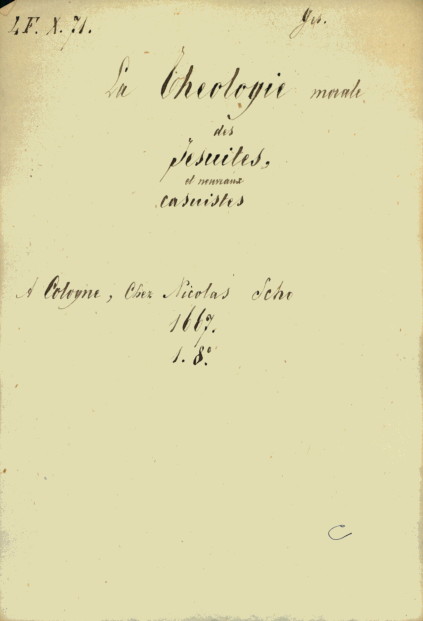 LF. X. 71.
Ges.
La Theologie morale
des
Jesuites,
et nouveaux
casuistes
A Cologne, Chez Nicolas Scho
1667.
1. 8°
C